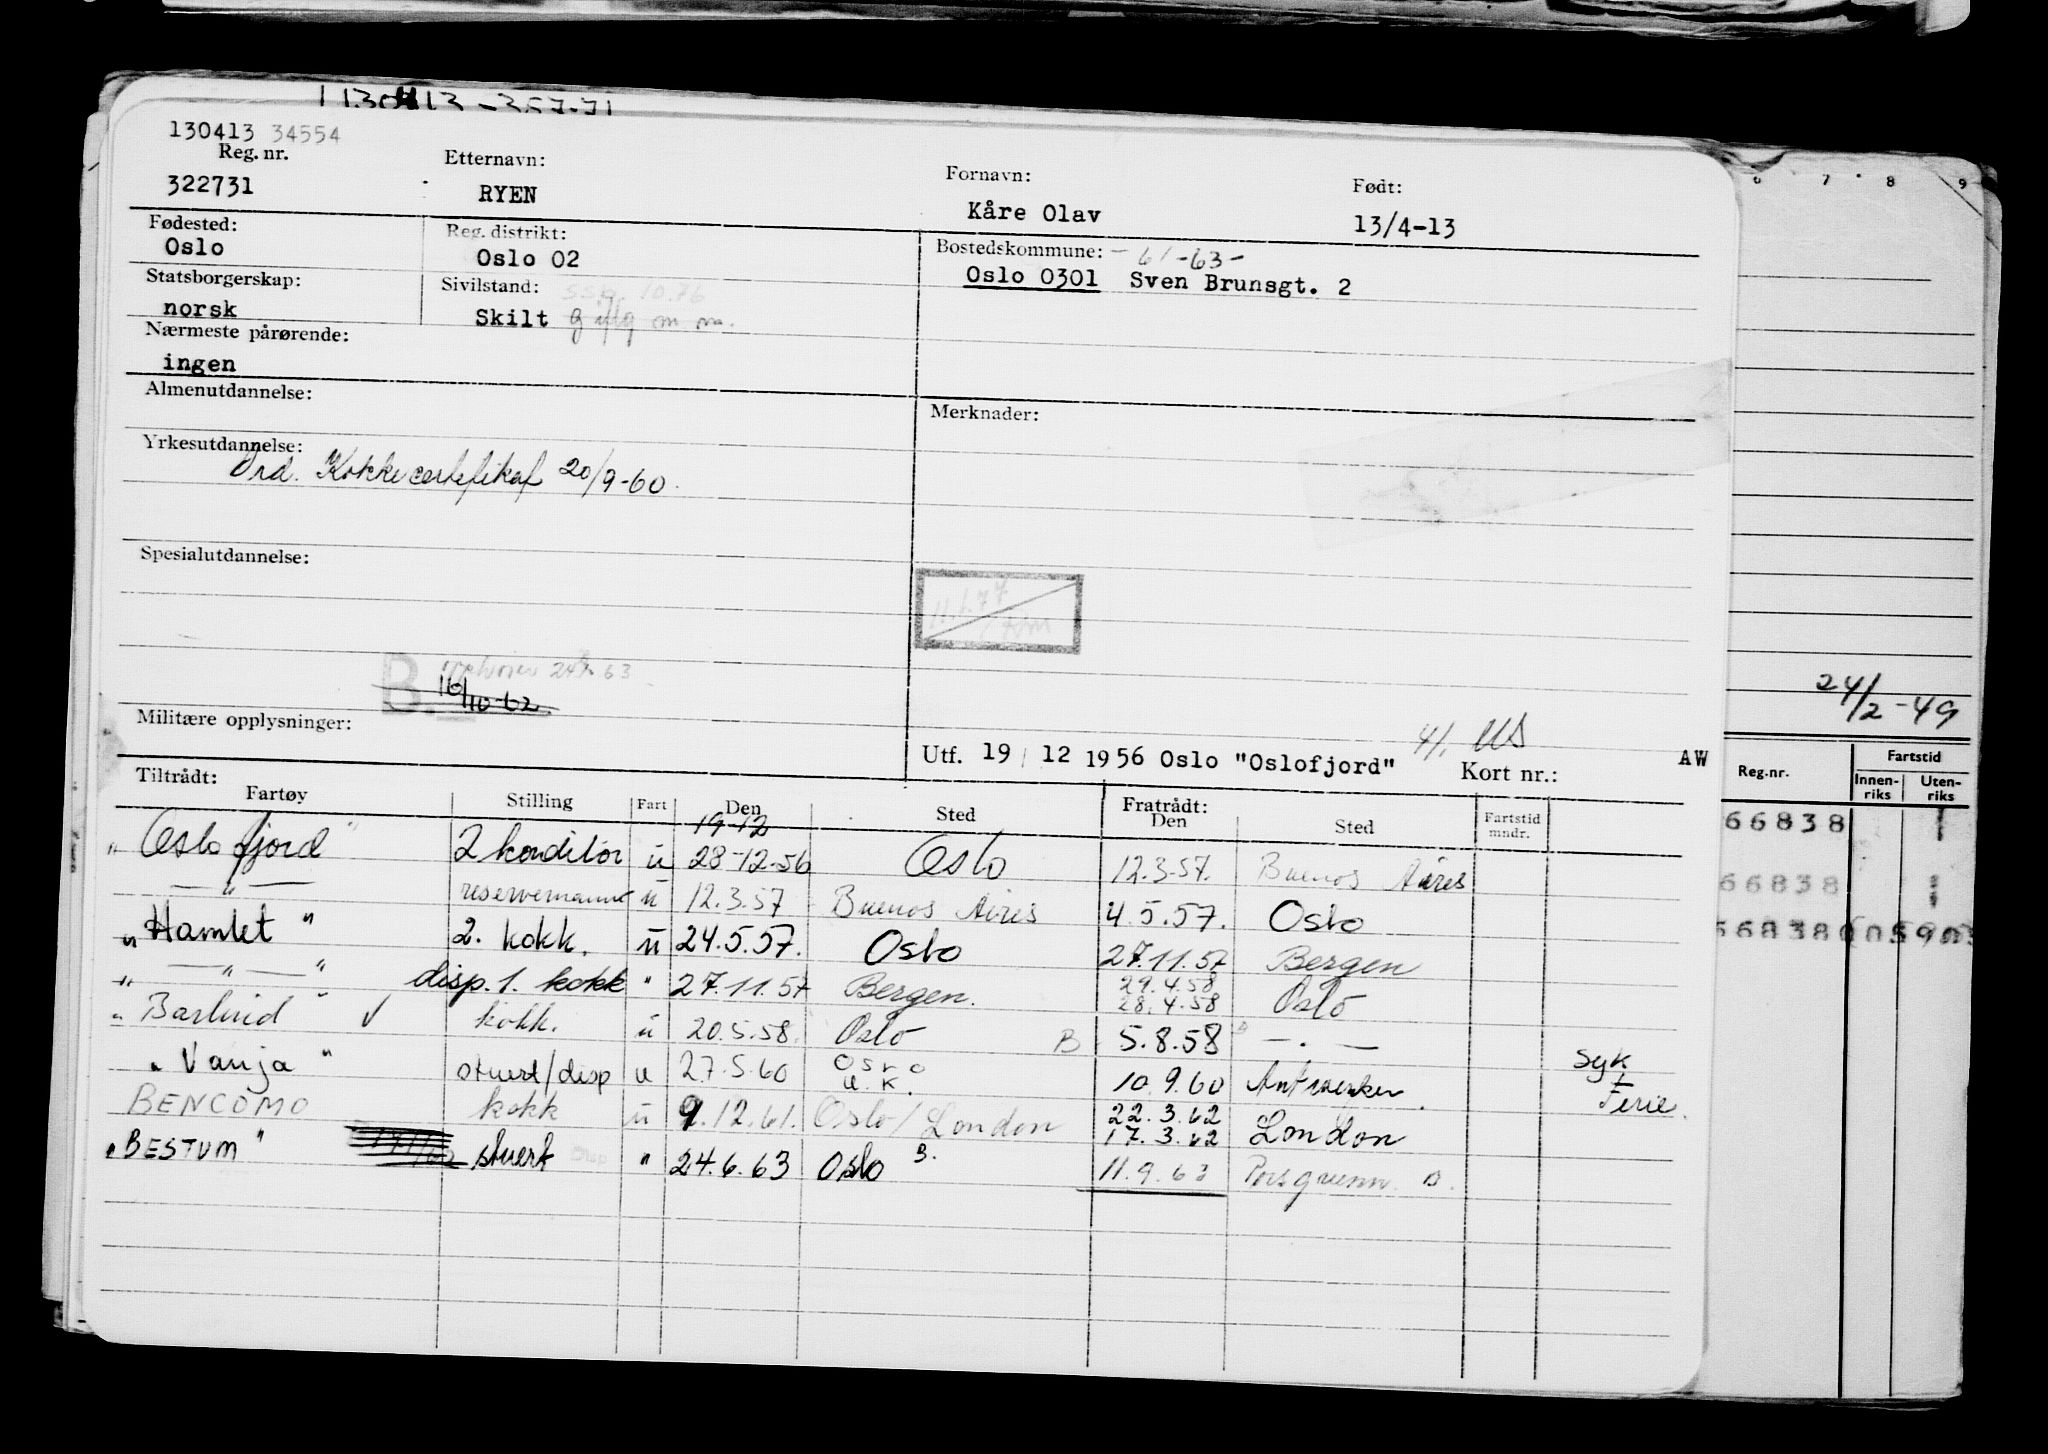 130413 34554
Reg. nr. Etternavn: Fornavn: Født:
322731 RYEN Kåre Olav 13/4-13
Fødested: Reg. distrikt: Bostedskommune: - 61-63-
Oslo Oslo 02 Oslo 0301 Sven Brunsgt. 2
Statsborgerskap: Sivilstand:
norsk Skilt
Nærmeste pårørende:
ingen
Almenutdannelse: Merknader:
Yrkesutdannelse:
Ord. Kokkecertifikat 20/9-60.
Spesialutdannelse:
11.1.77
B. 16/10-62.
Militære opplysninger:
24/2-49
Utf. 19/12 1956 Oslo "Oslofjord" Kort nr.: AW
Reg.nr. Fartstid
Innen-riks Uten-riks
Tiltrådt: Fratrådt:
Fartøy Stilling Fart Den Sted Den Sted Fartstid mndr.
19-12
"Oslofjord" 2 konditor u 28-12-56 Oslo 12.3.57. Buenos Aires
66838
— " — reservemann u 12.3.57 Buenos Aires 4.5.57. Oslo
66838
"Hamlet" 2. kokk. u 24.5.57. Oslo 27.11.57 Bergen
" — " — " disp. 1. kokk " 27.11.57 Bergen. 29.4.58 28.4.58 Oslo
"Barlind" ✓ kokk. u 20.5.58. Oslo B 5.8.58 — . —
"Vanja" stuert/disp u 27.5.60 Oslo u.k. 10.9.60 Antwerpen. Syk + Ferie.
BENCOMO kokk u 9.12.61. Oslo/London 22.3.62 17.3.62 London
"BESTUM" stuert " 24.6.63 Oslo B. 11.9.63 Porsgrunn B.